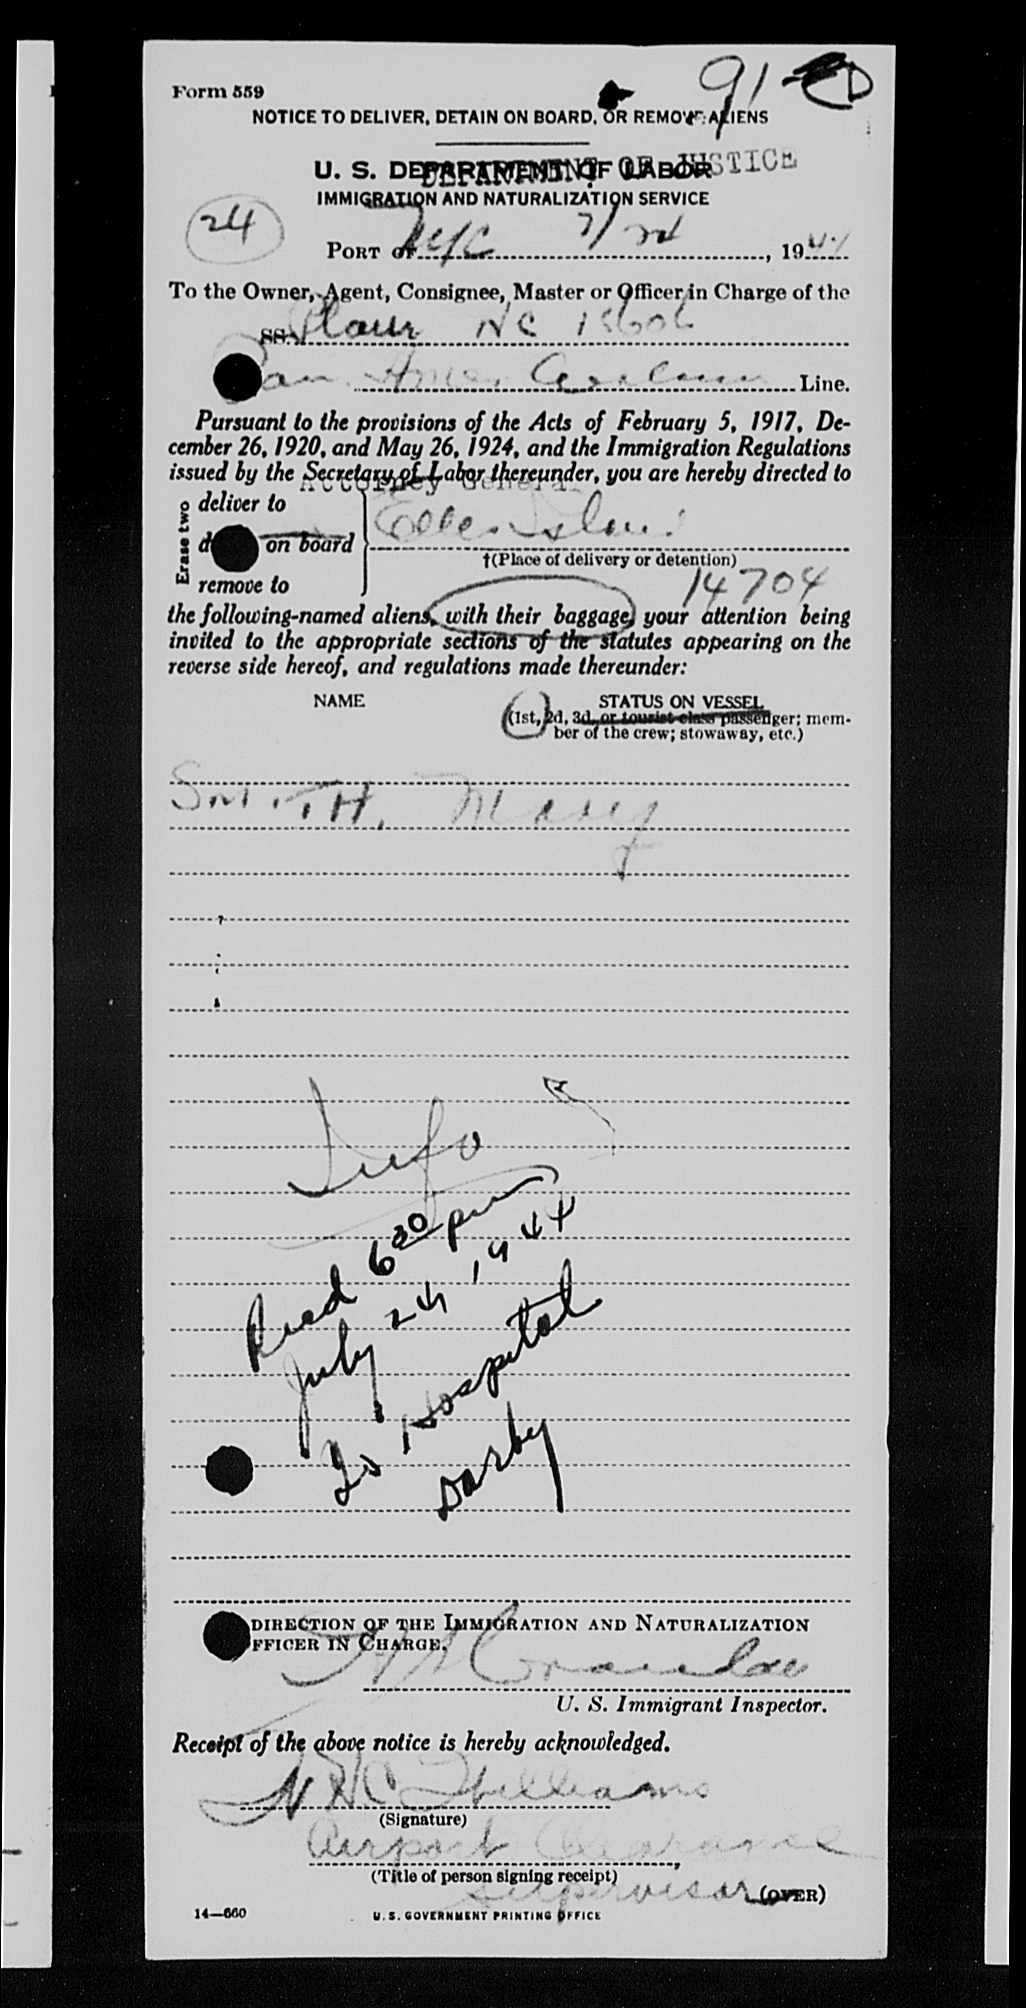 Form 559
91-
NOTICE TO DELIVER, DETAIN ON BOARD, OR REMOVE ALIENS
U. S. DEPARTMENT OF LABOR
DEPARTMENT OF JUSTICE
IMMIGRATION AND NATURALIZATION SERVICE
24
PORT OF NYC 7/24, 1944
To the Owner, Agent, Consignee, Master or Officer in Charge of the
SS. Plane NC 18606
Pan Amer Line.
Pursuant to the provisions of the Acts of February 5, 1917, De-
cember 26, 1920, and May 26, 1924, and the Immigration Regulations
issued by the Secretary of Labor thereunder, you are hereby directed to
Attorney General
Erase two
deliver to
on board
remove to
Ellis Island
†(Place of delivery or detention)
14704
the following-named aliens, with their baggage, your attention being
invited to the appropriate sections of the statutes appearing on the
reverse side hereof, and regulations made thereunder:
NAME
STATUS ON VESSEL
(1st, 2d, 3d, or tourist class passenger; mem-
ber of the crew; stowaway, etc.)
SMITH, Mary
Info
Recd 6 30 pm
July 24, 1944
To Hospital
Darby
DIRECTION OF THE IMMIGRATION AND NATURALIZATION
FFICER IN CHARGE.
U. S. Immigrant Inspector.
Receipt of the above notice is hereby acknowledged.
Williams
(Signature)
Airport Clearance
(Title of person signing receipt)
Supervisor
(OVER)
14—660
U. S. GOVERNMENT PRINTING OFFICE